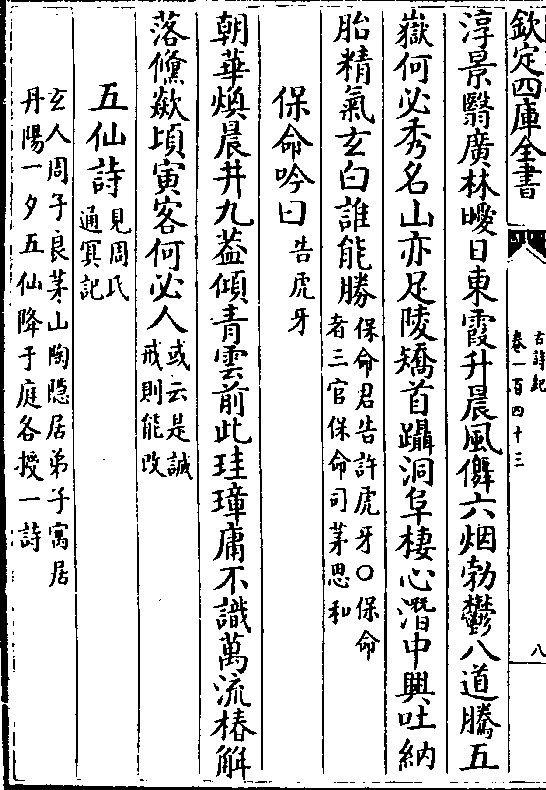 欽定四庫全書
古詩紀
卷一百四十三
八
淳景翳廣林曖日東霞升晨風儛六烟勃鬱八道騰五
嶽何必秀名山亦足陵矯首躡洞阜棲心潛中興吐納
胎精氣玄白誰能勝保命君告許虎牙〇保命
者三官保命司茅思和
保命吟曰告虎牙
朝華煥晨井九蓋傾青雲前此珪璋庸不識萬流椿解
落儵歘頃寅客何必人或云是誠
戒則能改
五仙詩見周氏
通冥記
玄人周子良茅山陶隱居弟子寓居
丹陽一夕五仙降于庭各授一詩